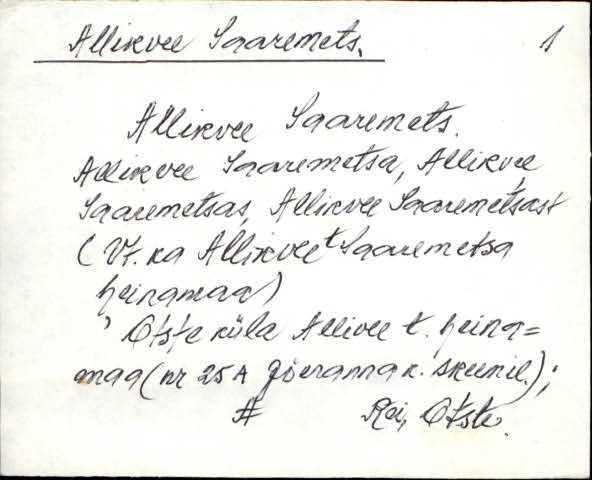 Allikvee Saaremets. 1
Allikvee Saaremets.
Allikvee Saaremetsa, Allikvee
Saaremetsas, Allikvee Saaremetsast
(Vt. ka Allikvee t Saaremetsa
heinamaa)
Otste küla Allivee t. heina=
maa (nr 25A Jõeranna k. skeemil.);
Rõi, Otste.